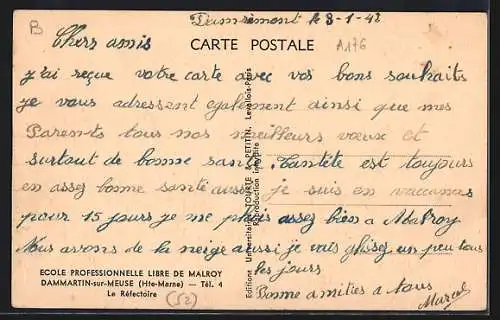 B
Damrémont le 8-1-42
CARTE POSTALE
A176
Chers amis
j'ai reçue votre carte avec vos bons souhaits
je vous adressent également ainsi que mes
Parents tous nos meilleurs vœux et
surtout de bonne santé. Tantéte est toujours
en assez bonne santé aussi, je suis en vaccances
pour 15 jours je me plais assez bien a Malroy
Nous avons de la neige aussi je vais glisser un peu tous
les jours.
Bonne amitiés a tous
Marcel
ECOLE PROFESSIONNELLE LIBRE DE MALROY
DAMMARTIN-sur-MEUSE (Hte-Marne) — Tél. 4
Le Réfectoire
(52)
Editions Universitaires, TOURTE & PETITIN, Levallois-Paris
Reproduction Interdite